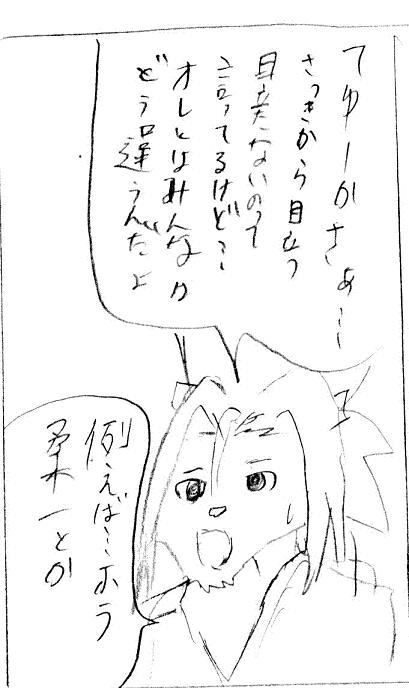 てゆーかさぁ…
さっきから目立つ
目立たないのって
言ってるけど…
オレとはみんなが
どう違うんだよ
例えば…ホラ
桑一とか